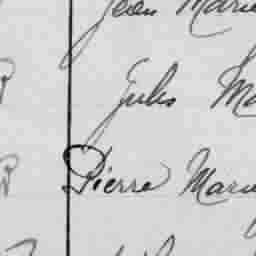 Jean Marie
Jules Ma
Pierre Marie